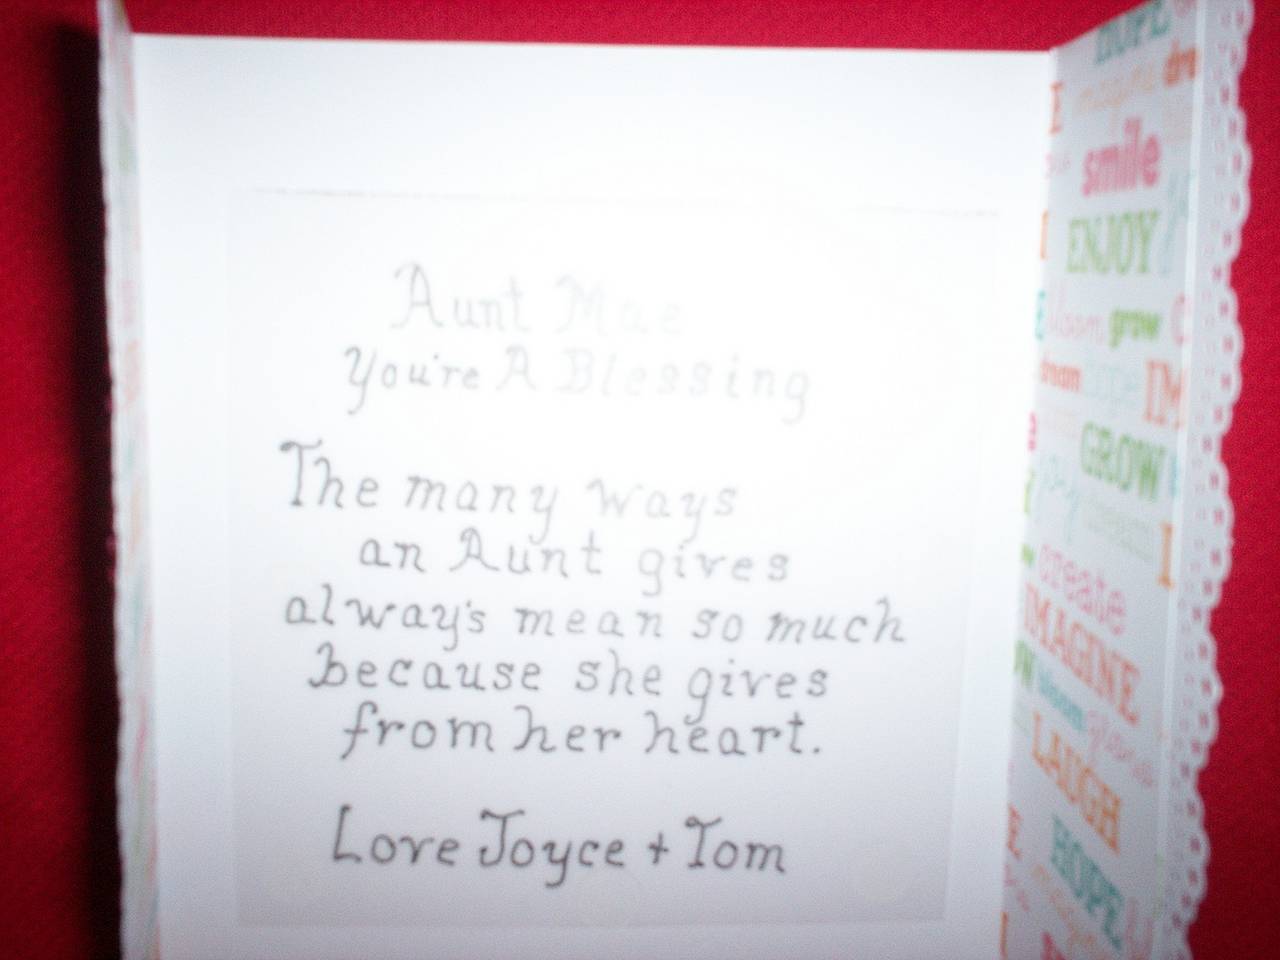 Aunt Mae
You're A Blessing
The many ways
an Aunt gives
always mean so much
because she gives
from her heart.
Love Joyce + Tom
HOPE
imagine dre
E
smile
I
ENJOY
E bloom grow
dream hope IM
GROW
joy
I
create
IMAGINE
OW bloom
LAUGH
E
HOPE